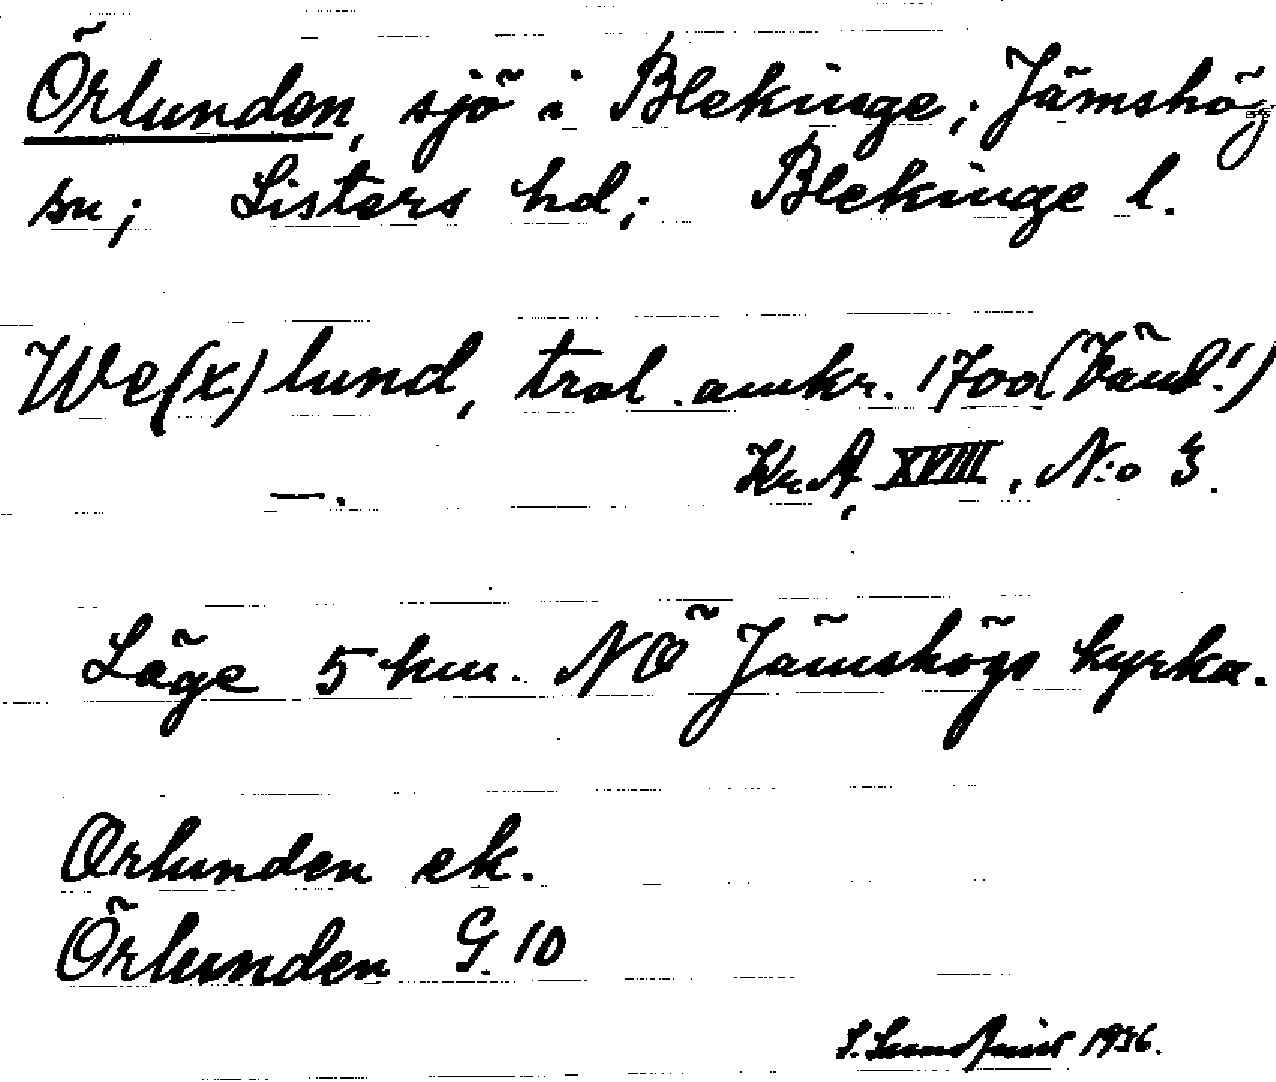 Örlunden, sjö i Blekinge; Jämshög
sn; Listers hd; Blekinge l.
We(x)lund, trol. omkr. 1700 (Vänd!)
—. Kr.A, XVIII, N:o 3.
Läge 5 km. NÖ Jämshögs kyrka.
Orlunden ek.
Örlunden G 10
S. 1936.